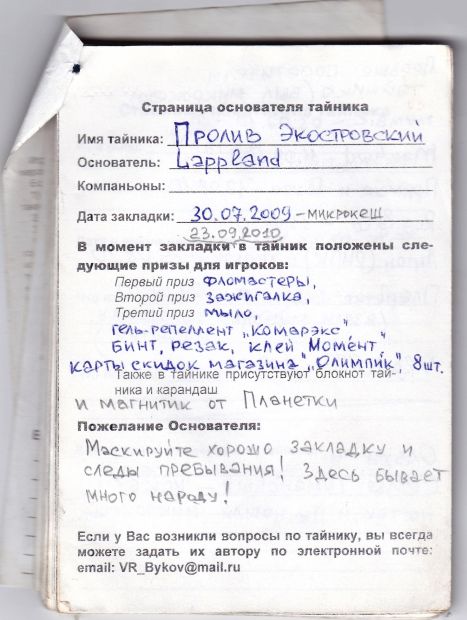 Страница основателя тайника
Имя тайника: Пролив Экостровский
Основатель: Lappland
Компаньоны:
Дата закладки: 30.07.2009 – микрокеш
23.09.2010
В момент закладки в тайник положены сле-
дующие призы для игроков:
Первый приз фломастеры,
Второй приз зажигалка,
Третий приз мыло,
гель-репеллент „Комарэкс"
бинт, резак, клей „Момент"
карты скидок магазина „Олимпик", 8шт.
Также в тайнике присутствуют блокнот тай-
ника и карандаш
и магнитик от Планетки
Пожелание Основателя:
Маскируйте хорошо закладку и
следы пребывания! Здесь бывает
много народу!
Если у Вас возникли вопросы по тайнику, вы всегда
можете задать их автору по электронной почте:
email: VR_Bykov@mail.ru